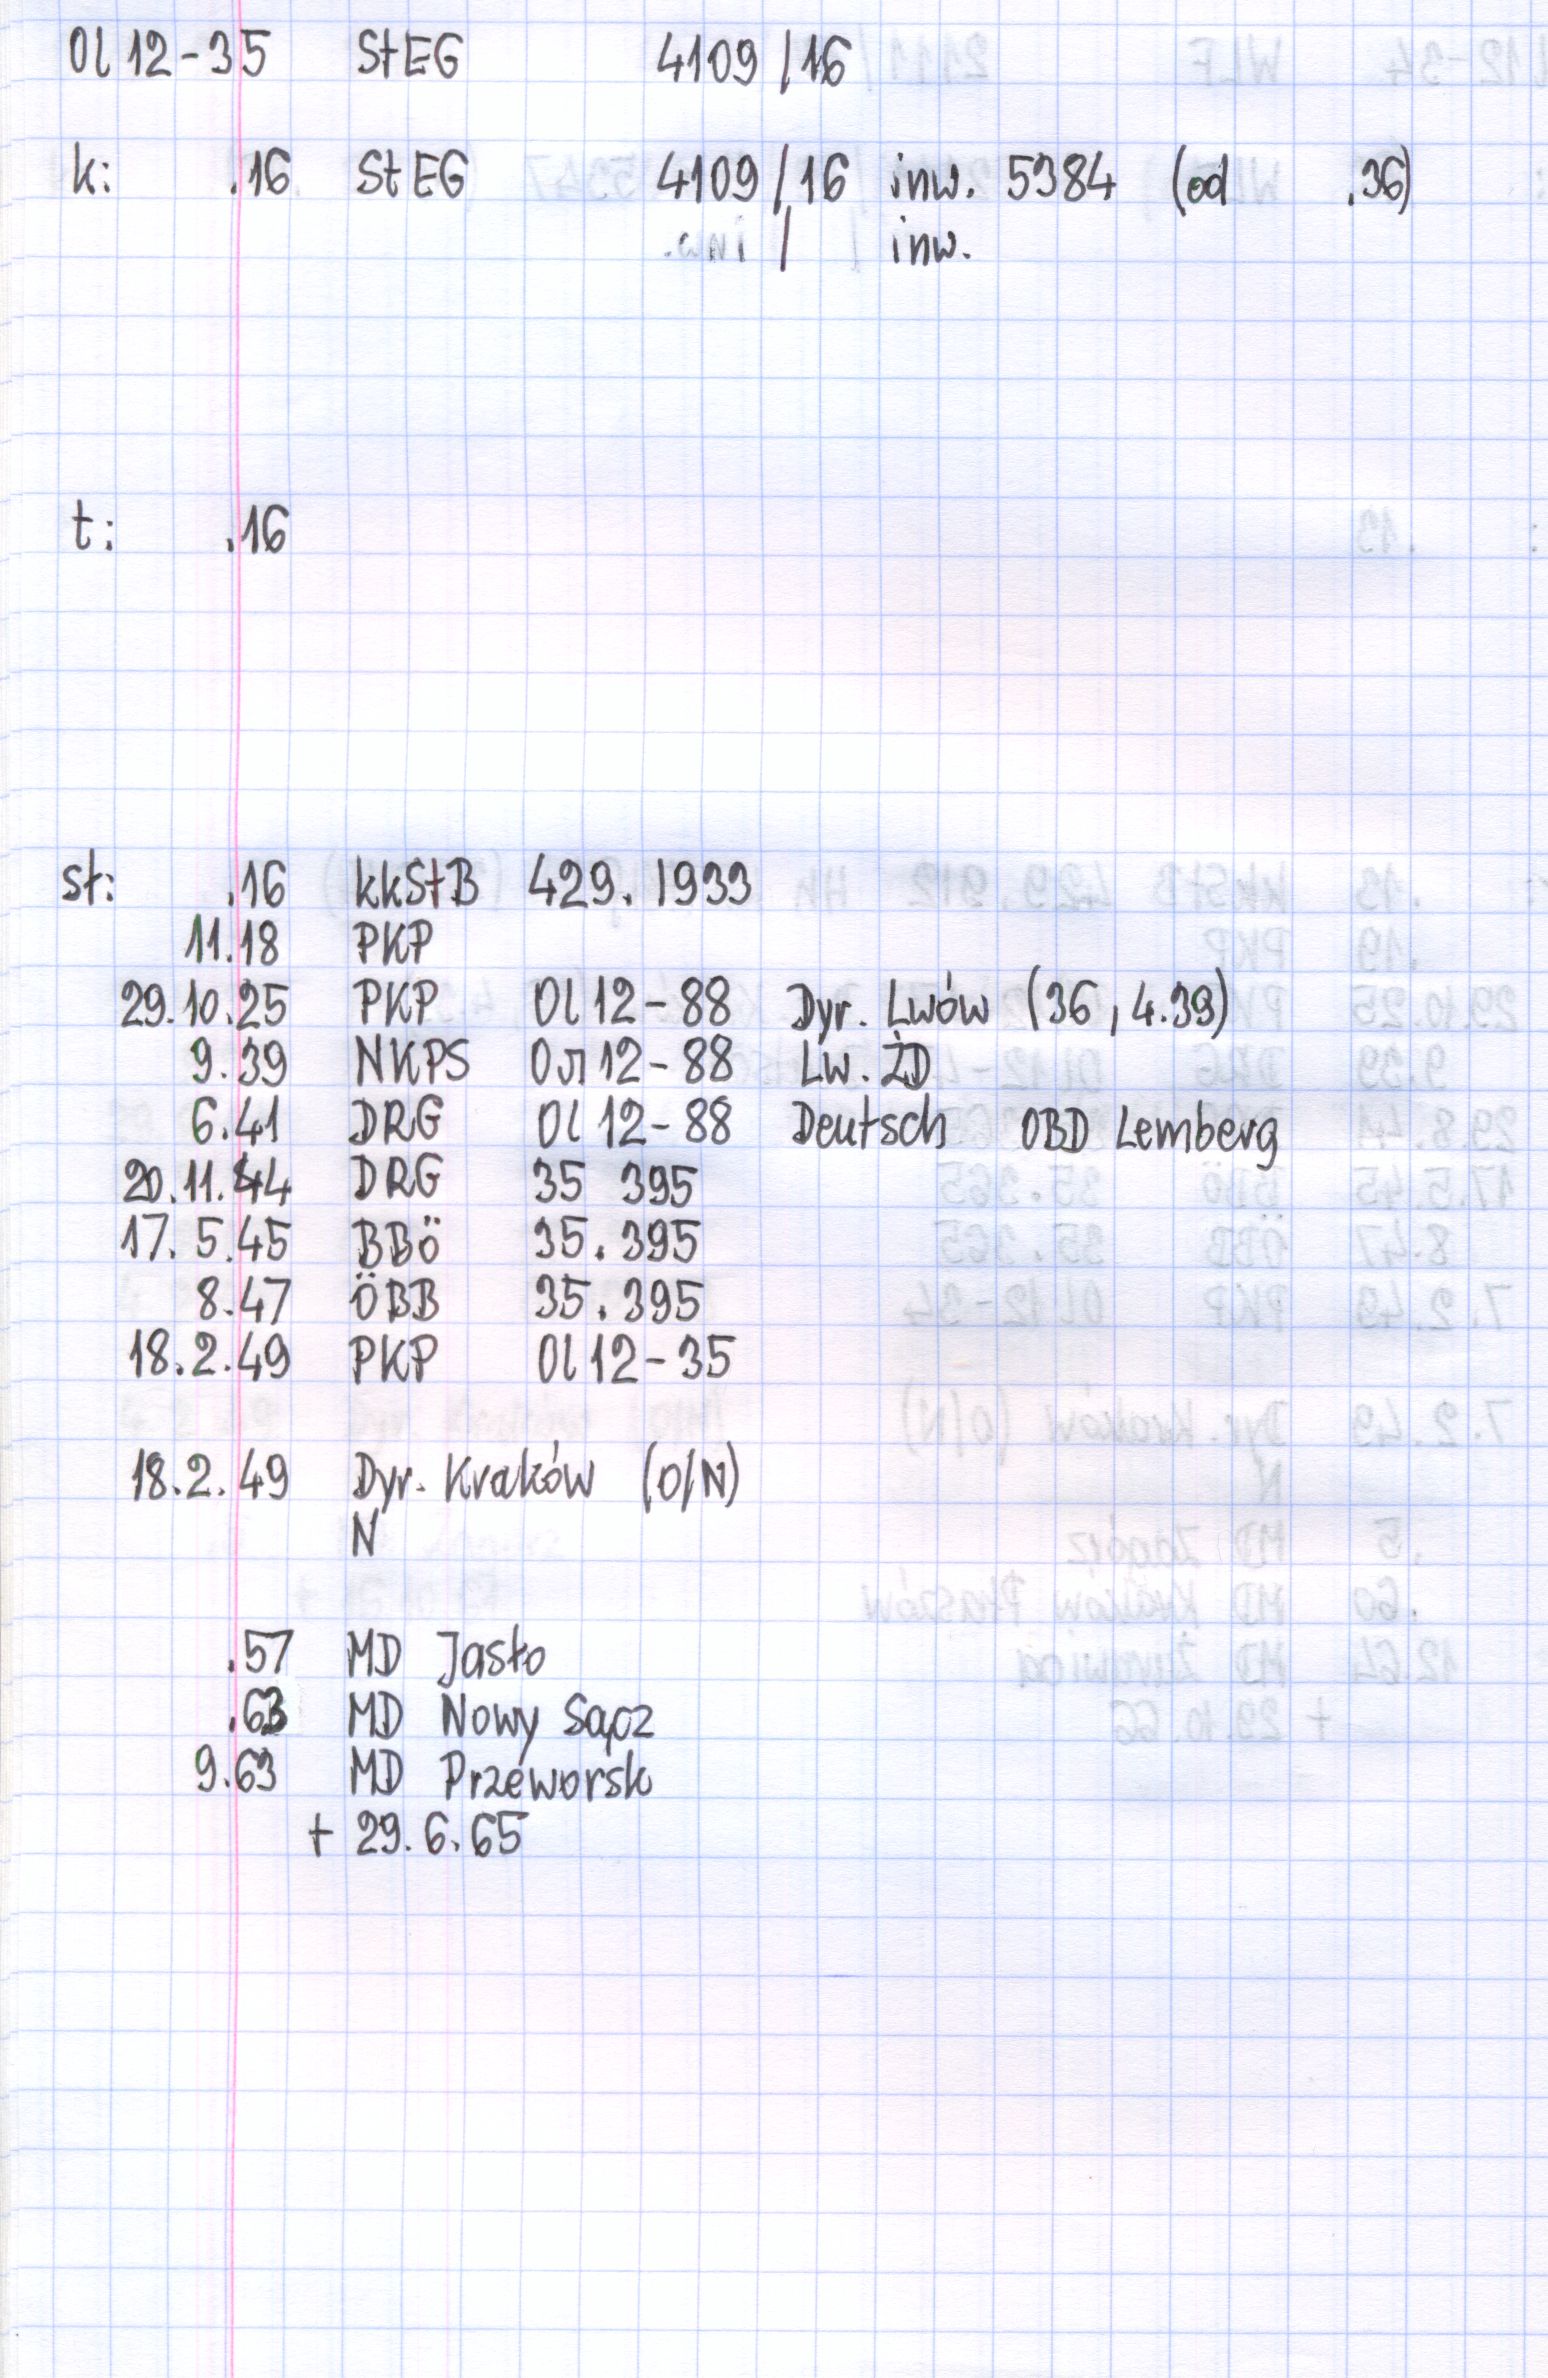 Ol 12-35 StEG 4109/16
k: .16 StEG 4109/16 inw. 5384 (od .36)
/ inw.
t: .16
st: .16 kkStB 429.1933
11.18 PKP
29.10.25 PKP Ol 12-88 Dyr. Lwów (36, 4.39)
9.39 NKPS Ол 12-88 Lw. ŻD
6.41 DRG Ol 12-88 Deutsch OBD Lemberg
20.11.44 DRG 35 395
17.5.45 BBÖ 35.395
8.47 ÖBB 35.395
18.2.49 PKP Ol 12-35
18.2.49 Dyr. Kraków (O/N)
N
.57 MD Jasło
.63 MD Nowy Sącz
9.63 MD Przeworsk
+ 29.6.65